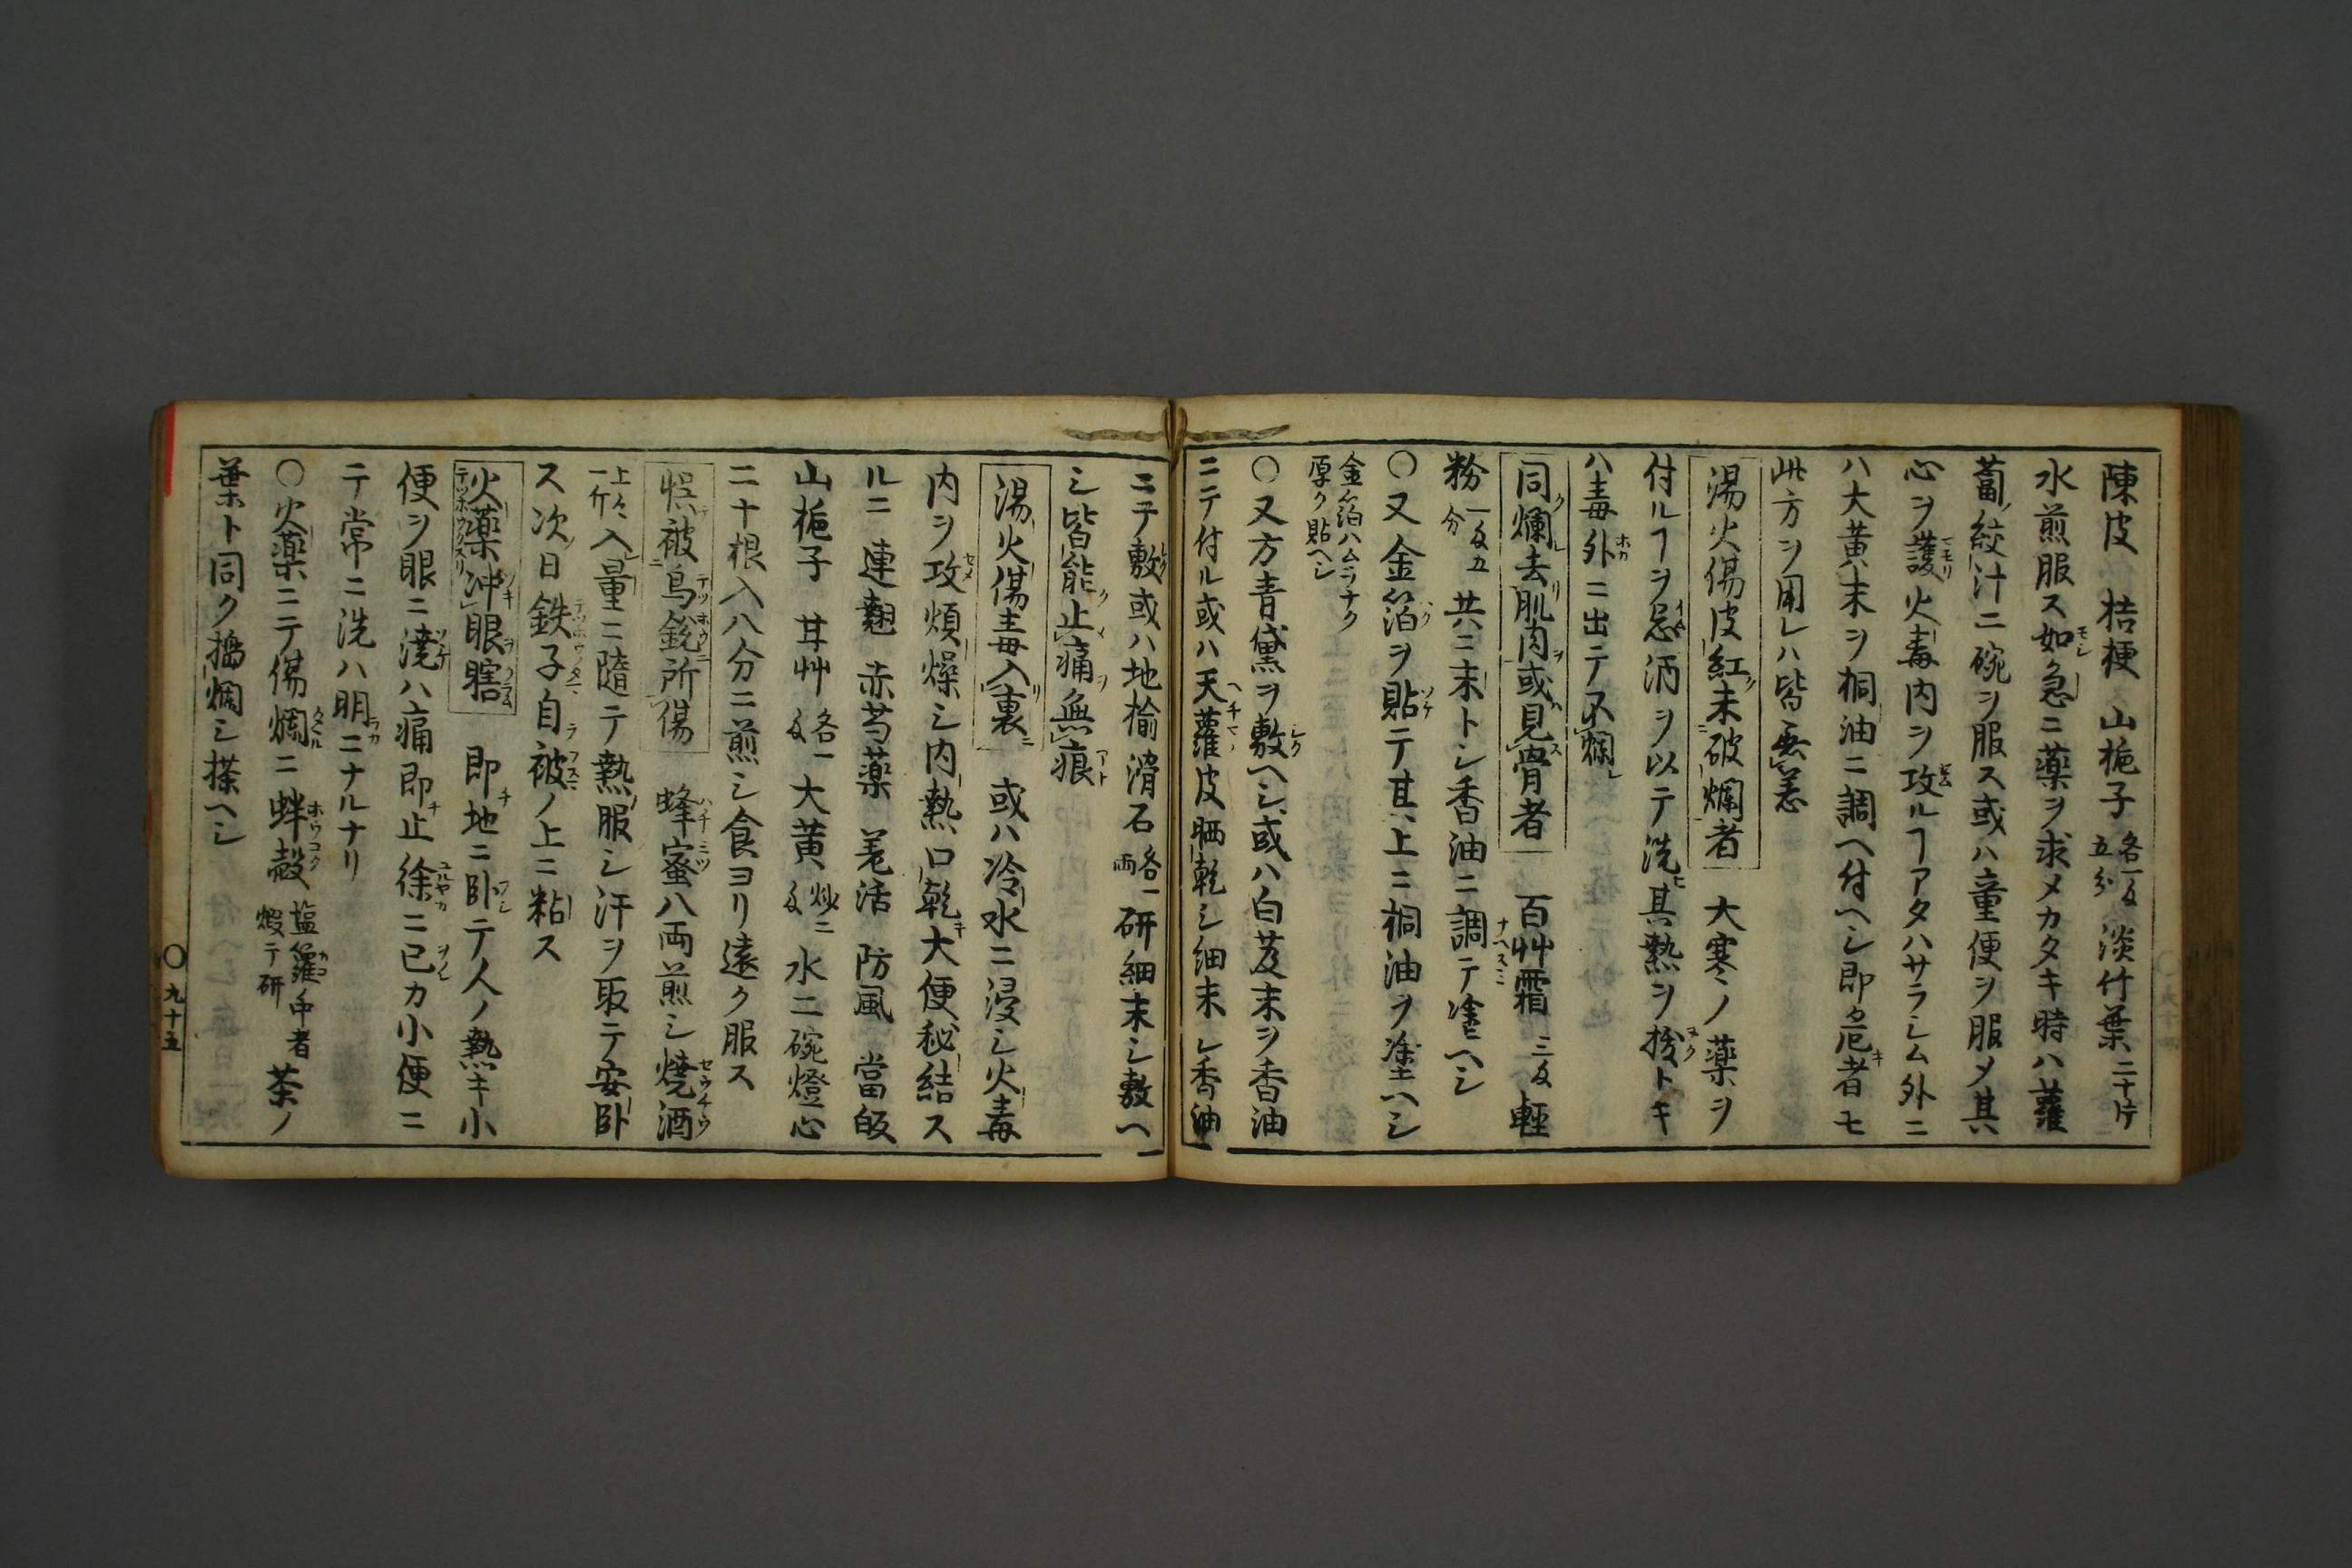 陳皮 桔梗 山梔子 各一匁五分 淡竹葉 二十片
水煎服ス如急ニ薬ヲ求メカタキ時ハ蘿
蔔絞汁二碗ヲ服ス或ハ童便ヲ服メ其
心ヲ護火毒内ヲ攻ルヿアタハサラシム外ニ
ハ大黄末ヲ桐油ニ調ヘ付ヘシ即危者モ
此方ヲ用レハ皆無恙
湯火傷皮紅未破爛者 大寒ノ薬ヲ
付ルヿヲ忌洒ヲ以テ洗其熱ヲ抜トキ
ハ毒外ニ出テ不爛
同爛去肌肉或見骨者 百艸霜 三匁 軽
粉 一匁五分 共ニ末トシ香油ニ調テ塗ヘシ
〇又金箔ヲ貼テ其上ニ桐油ヲ塗ヘシ
金箔ハムラナク
厚ク貼ヘシ
〇又方青黛ヲ敷ヘシ或ハ白芨末ヲ香油
ニテ付ル或ハ天蘿皮晒乾シ細末シ香油
ニテ敷或ハ地楡 滑石 各一両 研細末シ敷ヘ
シ皆能止痛無痕
湯火傷毒入裏 或ハ冷水ニ浸シ火毒
内ヲ攻煩燥シ内熱口乾大便秘結ス
ルニ 連翹 赤芍薬 羌活 防風 當皈
山梔子 甘艸 各一匁 大黄 炒二匁 水二碗燈心
二十根入八分ニ煎シ食ヨリ遠ク服ス
悞被鳥銃所傷 蜂蜜八両煎シ焼酒
上々一斤 入量ニ隨テ熱服シ汗ヲ取テ安臥
ス次日鉄子自被ノ上ニ粘ス
火薬冲眼瞎 即地ニ臥テ人ノ熱キ小
便ヲ眼ニ澆ハ痛即止徐ニ已カ小便ニ
テ常ニ洗ハ明ニナルナリ
〇火薬ニテ傷爛ニ蚌殻 塩籮中者煅テ研 茶ノ
葉ト同ク搗爛シ搽ヘシ
〇九十五